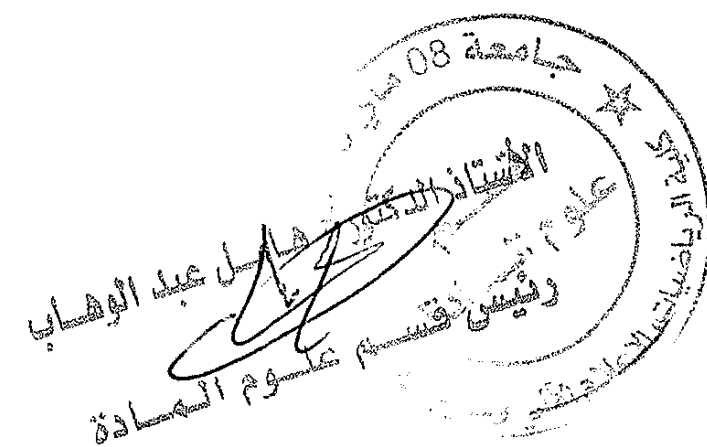 جامعة 08 ماي
كلية الرياضيات الإعلام الآلي
قسم
علوم
الأستاذ الدكتور عبد الوهاب
رئيس قسم علوم المادة